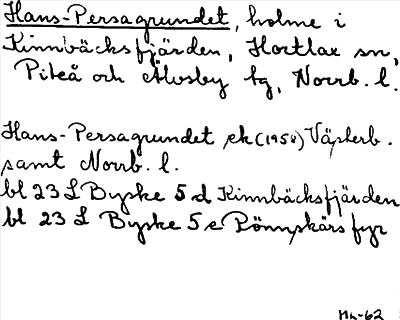 Hans-Persagrundet, holme i
Kinnbäcksfjärden, Hortlax sn,
Piteå och Älvsby tg, Norrb. l.
Hans-Persagrundet ek (1958) Västerb.
samt Norrb. l.
bl 23 L Byske 5 d Kinnbäcksfjärden
bl 23 L Byske 5 e Rönnskärs fyr
Mh-62